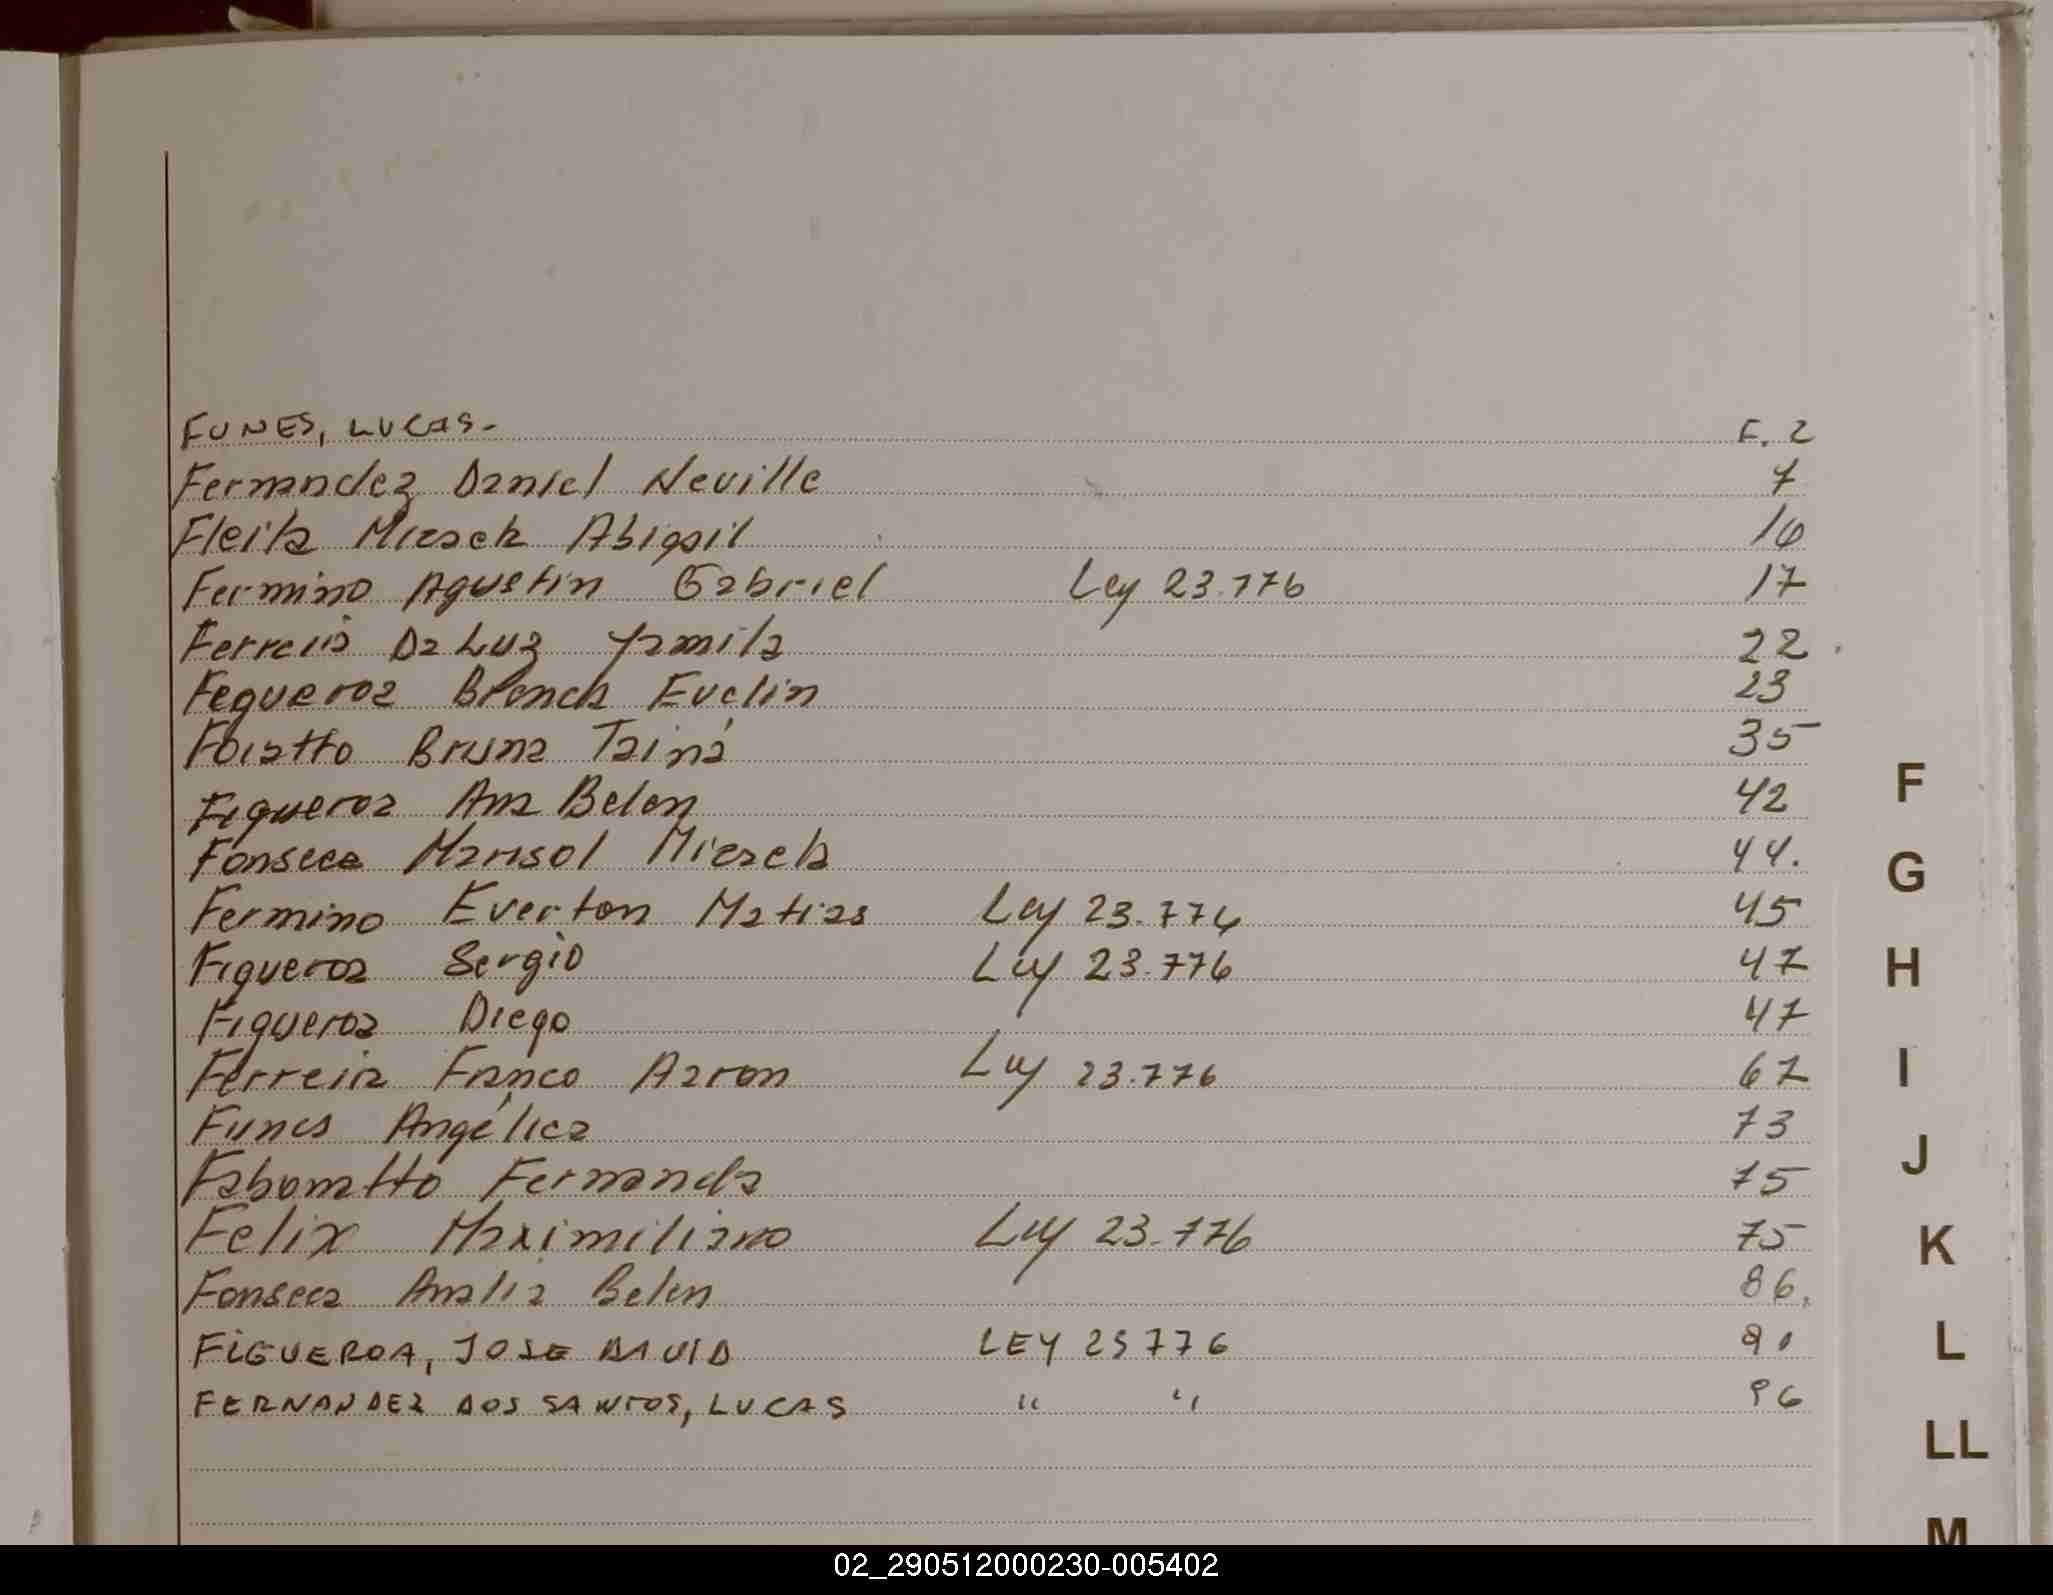 FUNES, LUCAS.- F. 2
Fernandez Daniel Neville 7
Fleita Micaela Abigail 16
Fermino Agustin Gabriel Ley 23.776 17
Ferreira Da Luz Yamila 22
Fegueroa Brenda Evelin 23
Foiatto Bruna Tainá 35
Figueroa Ana Belen 42
Fonseca Marisol Micaela 44.
Fermino Everton Matias Ley 23.776 45
Figueroa Sergio Ley 23.776 47
Figueroa Diego 47
Ferreira Franco Aaron Ley 23.776 67
Funes Angélica 73
Fernanda 75
Felix Maximiliano Ley 23.776 75
Fonseca Analia Belen 86.
FiGUEROA, JOSE DAVID LEY 23776 91
FERNANDEZ DOS SANTOS, LUCAS " " 96
F
G
H
I
J
K
L
LL
M
02_290512000230-005402